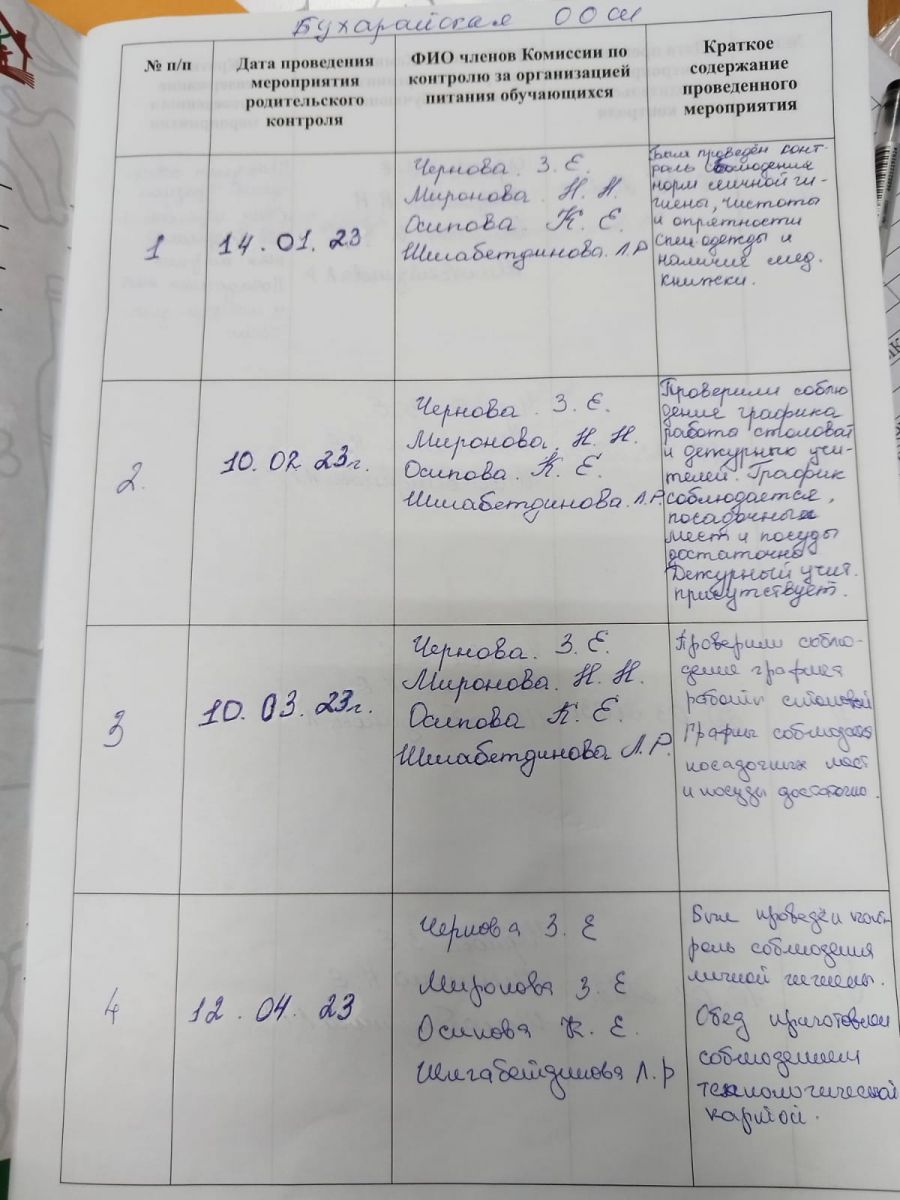 Бухарайская ООШ
№ п/п
Дата проведения
мероприятия
родительского
контроля
ФИО членов Комиссии по
контролю за организацией
питания обучающихся
Краткое
содержание
проведенного
мероприятия
1
14.01.23
Чернова. З. Е.
Миронова. Н. Н.
Осипова. К. Е.
Шигабетдинова. Л.Р
Был проведён конт-
роль соблюдения
норм личной ги-
гиены, чистоты
и опрятности
спец.одежды и
наличия мед.
книжки.
2.
10.02 23г.
Чернова. З. Е.
Миронова. Н. Н.
Осипова. К. Е.
Шигабетдинова. Л.Р.
Проверили соблю
дение графика
работа столовой
и дежурных учи-
телей. График
соблюдается,
посадочных
мест и посуды
достаточно
Дежурный учит.
присутствует.
3
10.03.23г.
Чернова. З. Е.
Миронова. Н. Н.
Осипова К. Е.
Шигабетдинова Л.Р.
Проверили соблю-
дение графика
работы столовой
График соблюдается
посадочных мест
и посуды достаточно.
4
12.04.23
Чернова З. Е
Миронова З. Е
Осипова К. Е.
Шигабетдинова Л.р
Был проведён конт-
роль соблюдения
личной гигиены.
Обед приготовлен
соблюдением
технологической
картой.